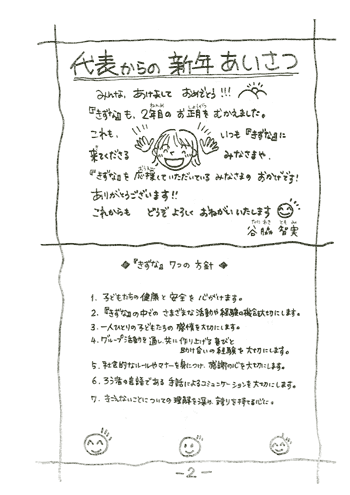 代表からの 新年 あいさつ
みんな、あけまして おめでとう!!!
『きずな』も、2年目の お正月を むかえました。
これも、 いつも『きずな』に
来てくださる みなさまや、
『きずな』を 応援していただいている みなさまの おかげです!
ありがとうございます!!
これからも どうぞ よろしく おねがいいたします
谷脇 智実
◆『きずな』 7つの 方針◆
1. 子どもたちの 健康と 安全を 心がけます。
2. 『きずな』の中での さまざまな 活動や経験の機会を大切にします。
3. 一人ひとりの 子どもたちの 感性を大切にします。
4. グループ活動を 通し、共に 作り上げる 喜びと
助け合いの 経験を 大切にします。
5. 社会的なルールやマナーを 身につけ、感謝の心を大切にします。
6. ろう者の言語である 手話によるコミュニケーションを大切にします。
7. きこえないことについての 理解を深め、誇りを持てる心に。
-2-